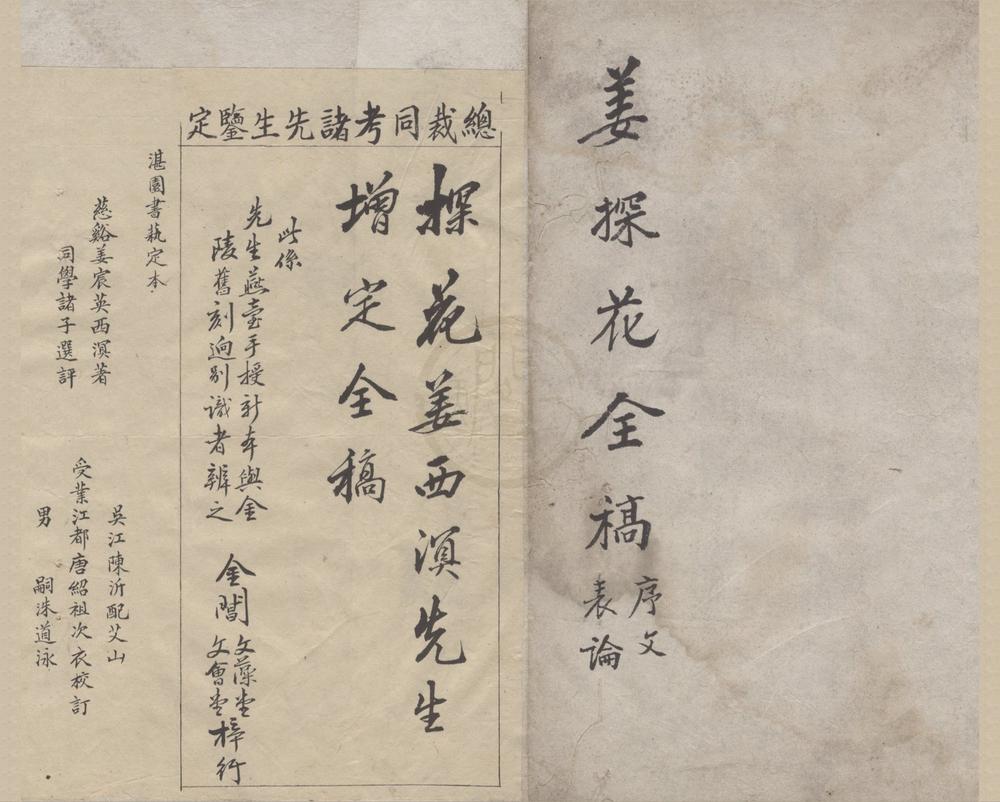 姜探花全稿
序文
表論
總裁同考諸先生鑒定
探花姜西溟先生
增定全稿
此係
先生燕臺手授新本與金
陵舊刻迥別識者辨之
金閶
文藻堂
文會堂
梓行
湛園書蓺定本
慈谿姜宸英西溟著
同學諸子選評
吳江陳沂配艾山
受業江都唐紹祖次衣校訂
男 嗣洙道泳